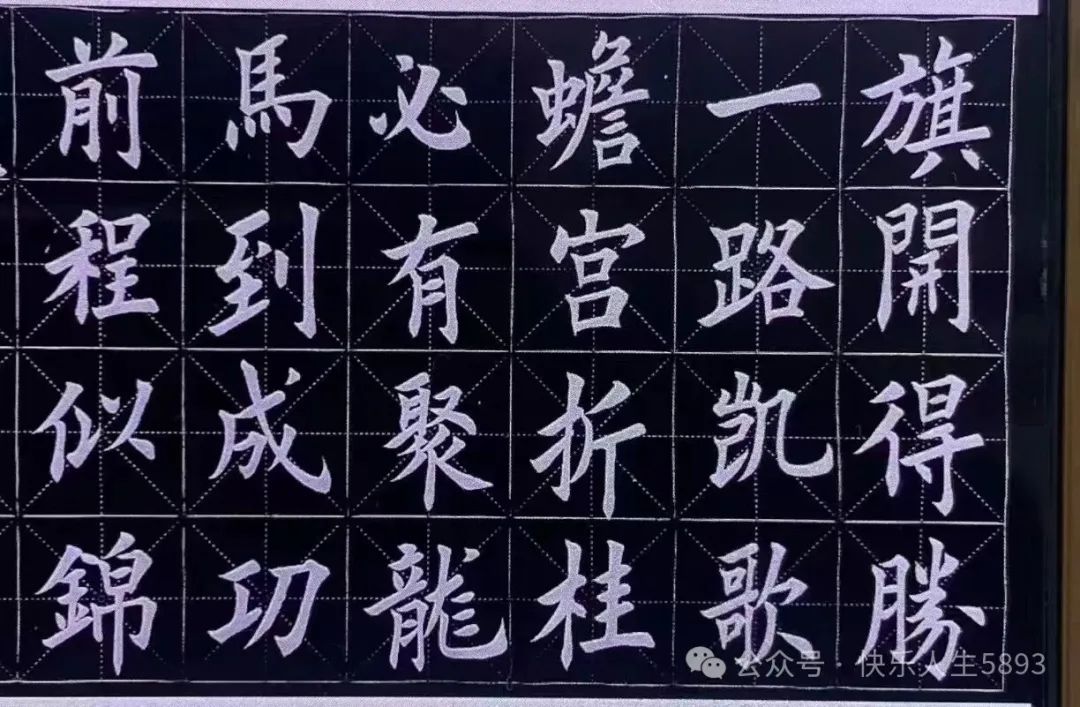 旗開得勝
一路凯歌
蟾宫折桂
必有聚龍
馬到成功
前程似錦
公众号 · 快乐人生5893